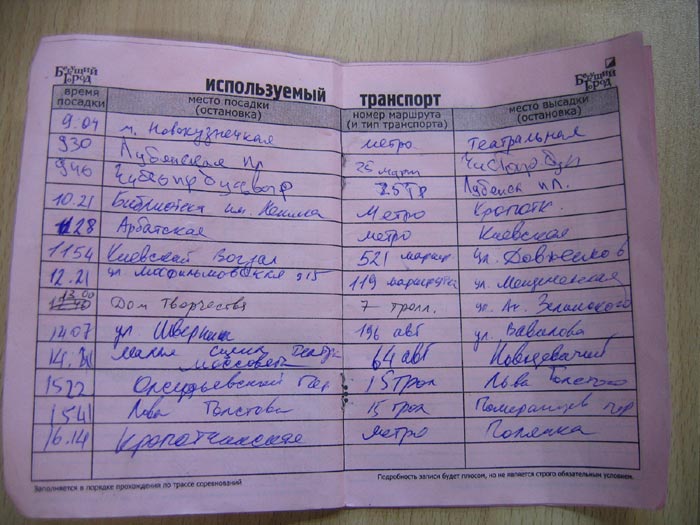 Бегущий Город
используемый транспорт
Бегущий Город
время посадки место посадки (остановка) номер маршрута (и тип транспорта) место высадки (остановка)
9:04 м. Новокузнецкая метро Театральная
930 Лубянская пл 25 марш
946 25тр Лубянск пл.
10.21 Библиотека им. Ленина метро Кропотк.
1128 Арбатская метро Киевская
1154 Киевский Вокзал 521 марш ул. Довженко
12.21 ул. Мосфильмовская 119 маршрутка
13.00 Дом Творчества 7 тролл. ул. Ак. Зелинского
1407 ул. Шверника 196 авт ул. Вавилова
14.21 Малая сцена Театра Моссовета 64 авт Новодевичий
1522 Олсуфьевский пер. 15 трол Льва Толстого
1541 Льва Толстого 15 трол Померанцев пер
16.14 Кропоткинская метро Полянка
Заполняется в порядке прохождения по трассе соревнований
Подробность записи будет плюсом, но не является строго обязательным условием.